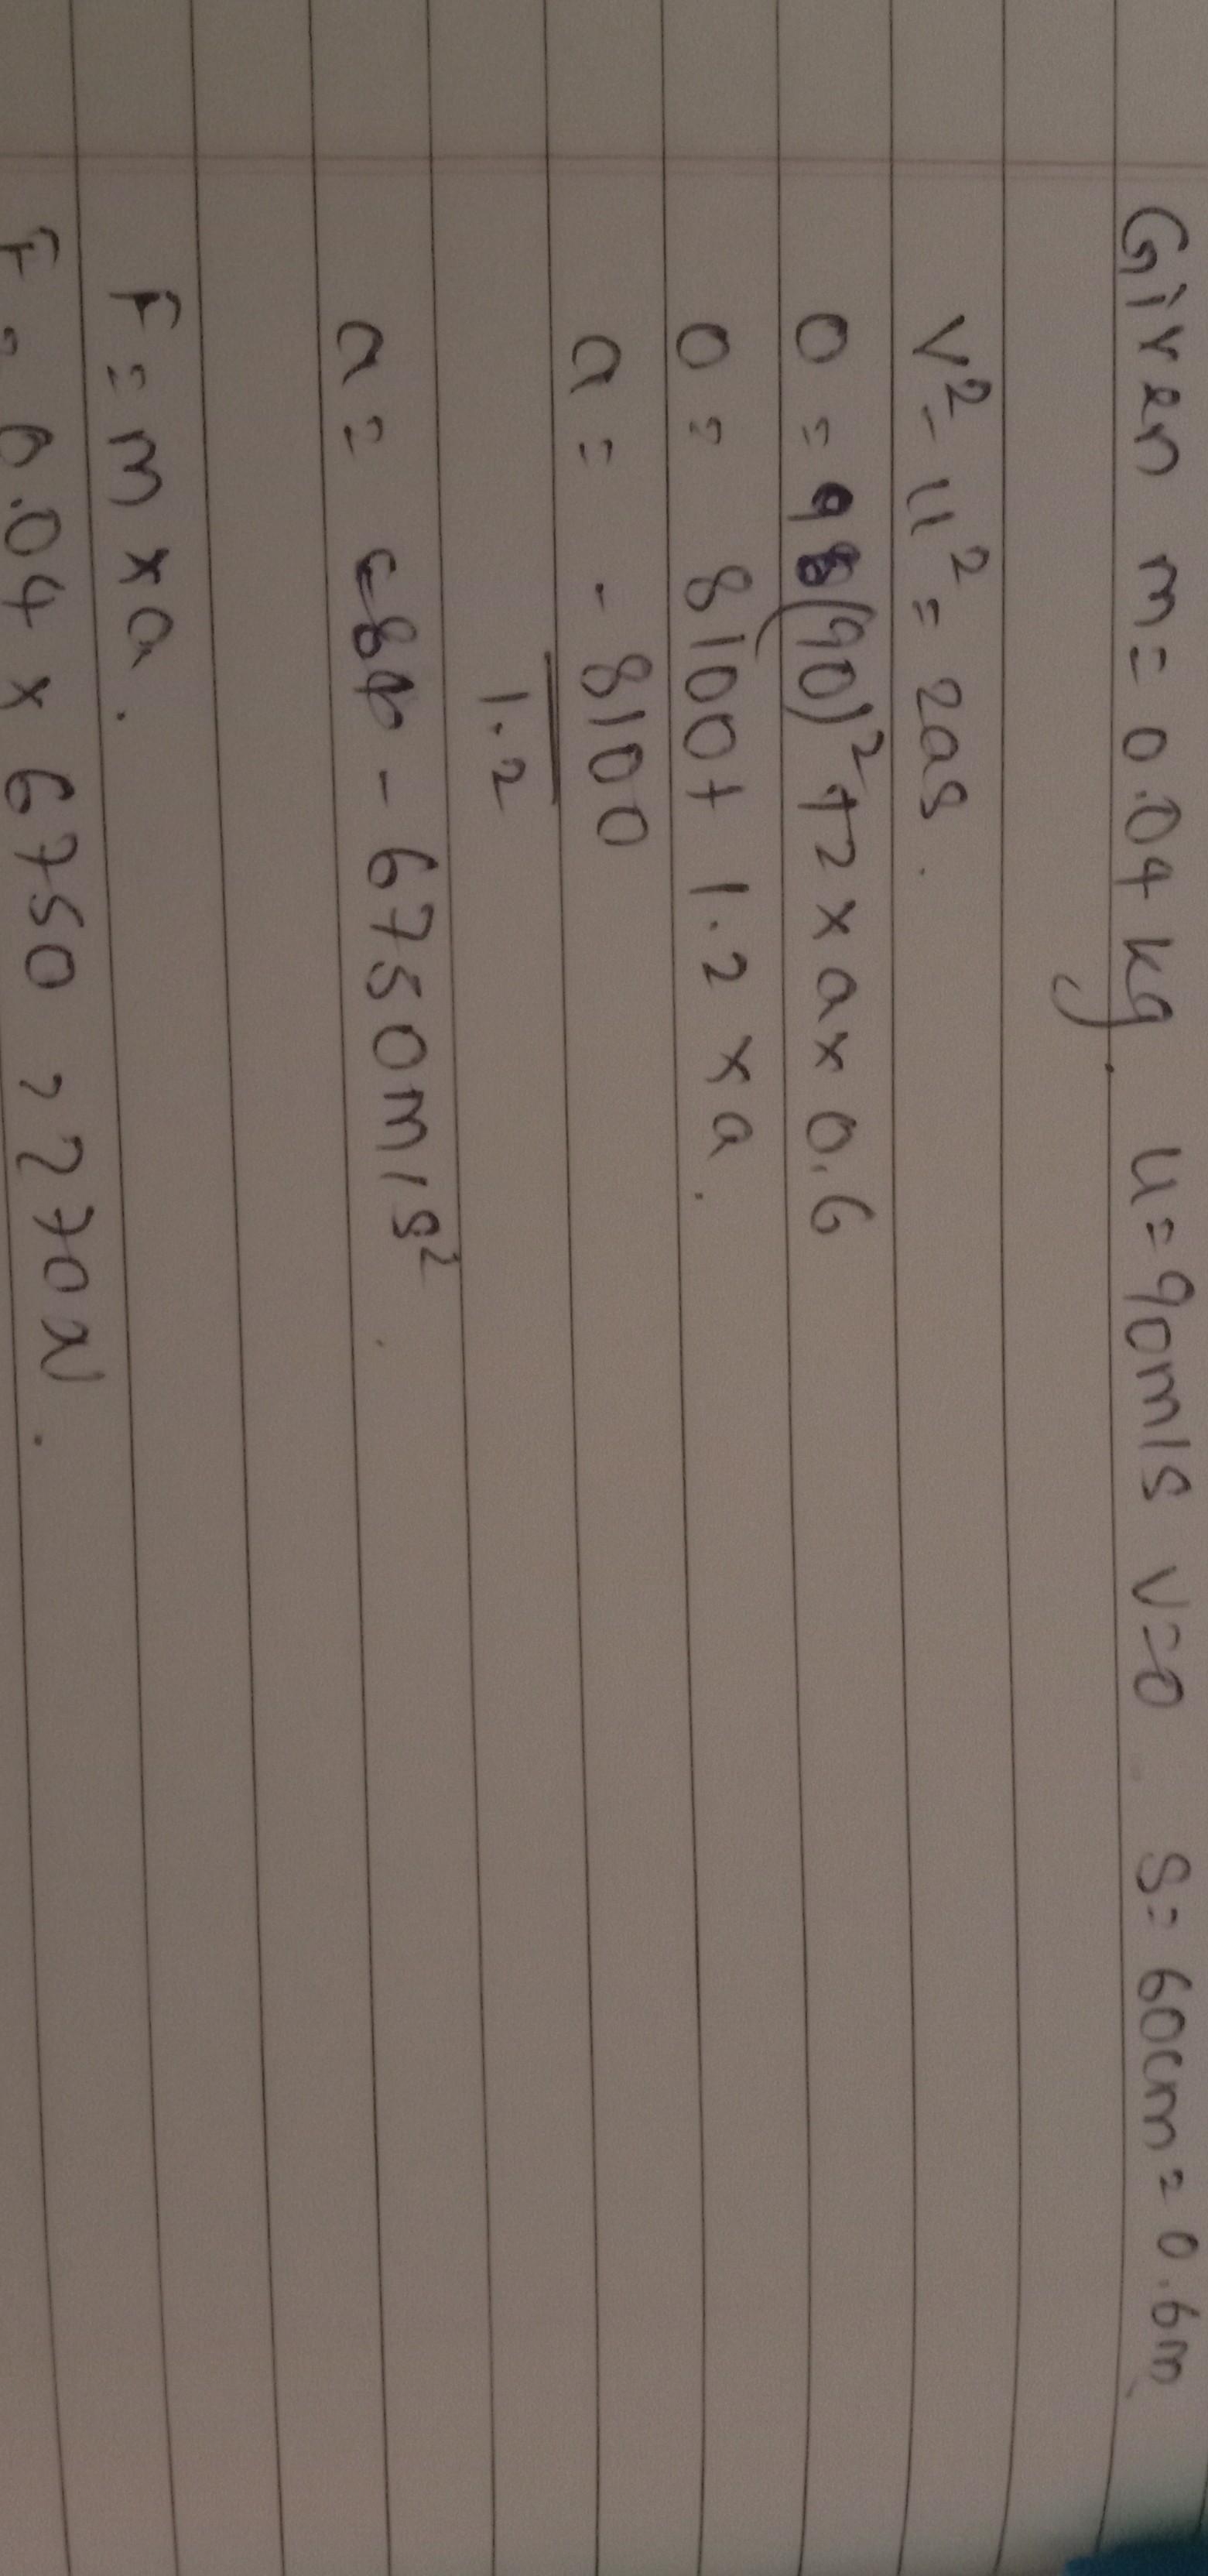 Given m = 0.04 kg. u = 90m/s v=0 s = 60cm = 0.6m
v² - u² = 2as.
0 = (90)² + 2 x a x 0.6
0 = 8100 + 1.2 x a.
a = - 8100
1.2
a = - 6750m/s²
F = m x a.
F = 0.04 x 6750 = 270N.